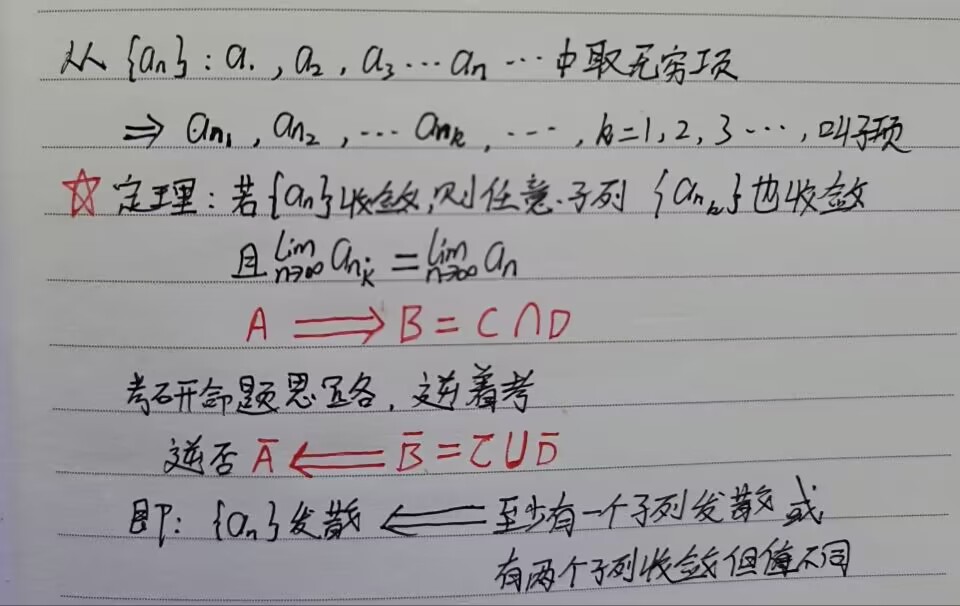 从{an}: a1, a2, a3 ··· an ··· 中取无穷项
⇒ an1, an2, ··· ank, ···, k=1, 2, 3 ···, 叫子项
☆ 定理: 若{an}收敛, 则任意子列 {ank}也收敛
且 lim n→∞ ank = lim n→∞ an
A ⟹ B = C∩D
考研命题思路, 逆着考
逆否 Ā ⟸ B̄ = C̄∪D̄
即: {an}发散 ⟸ 至少有一个子列发散 或
有两个子列收敛但值不同